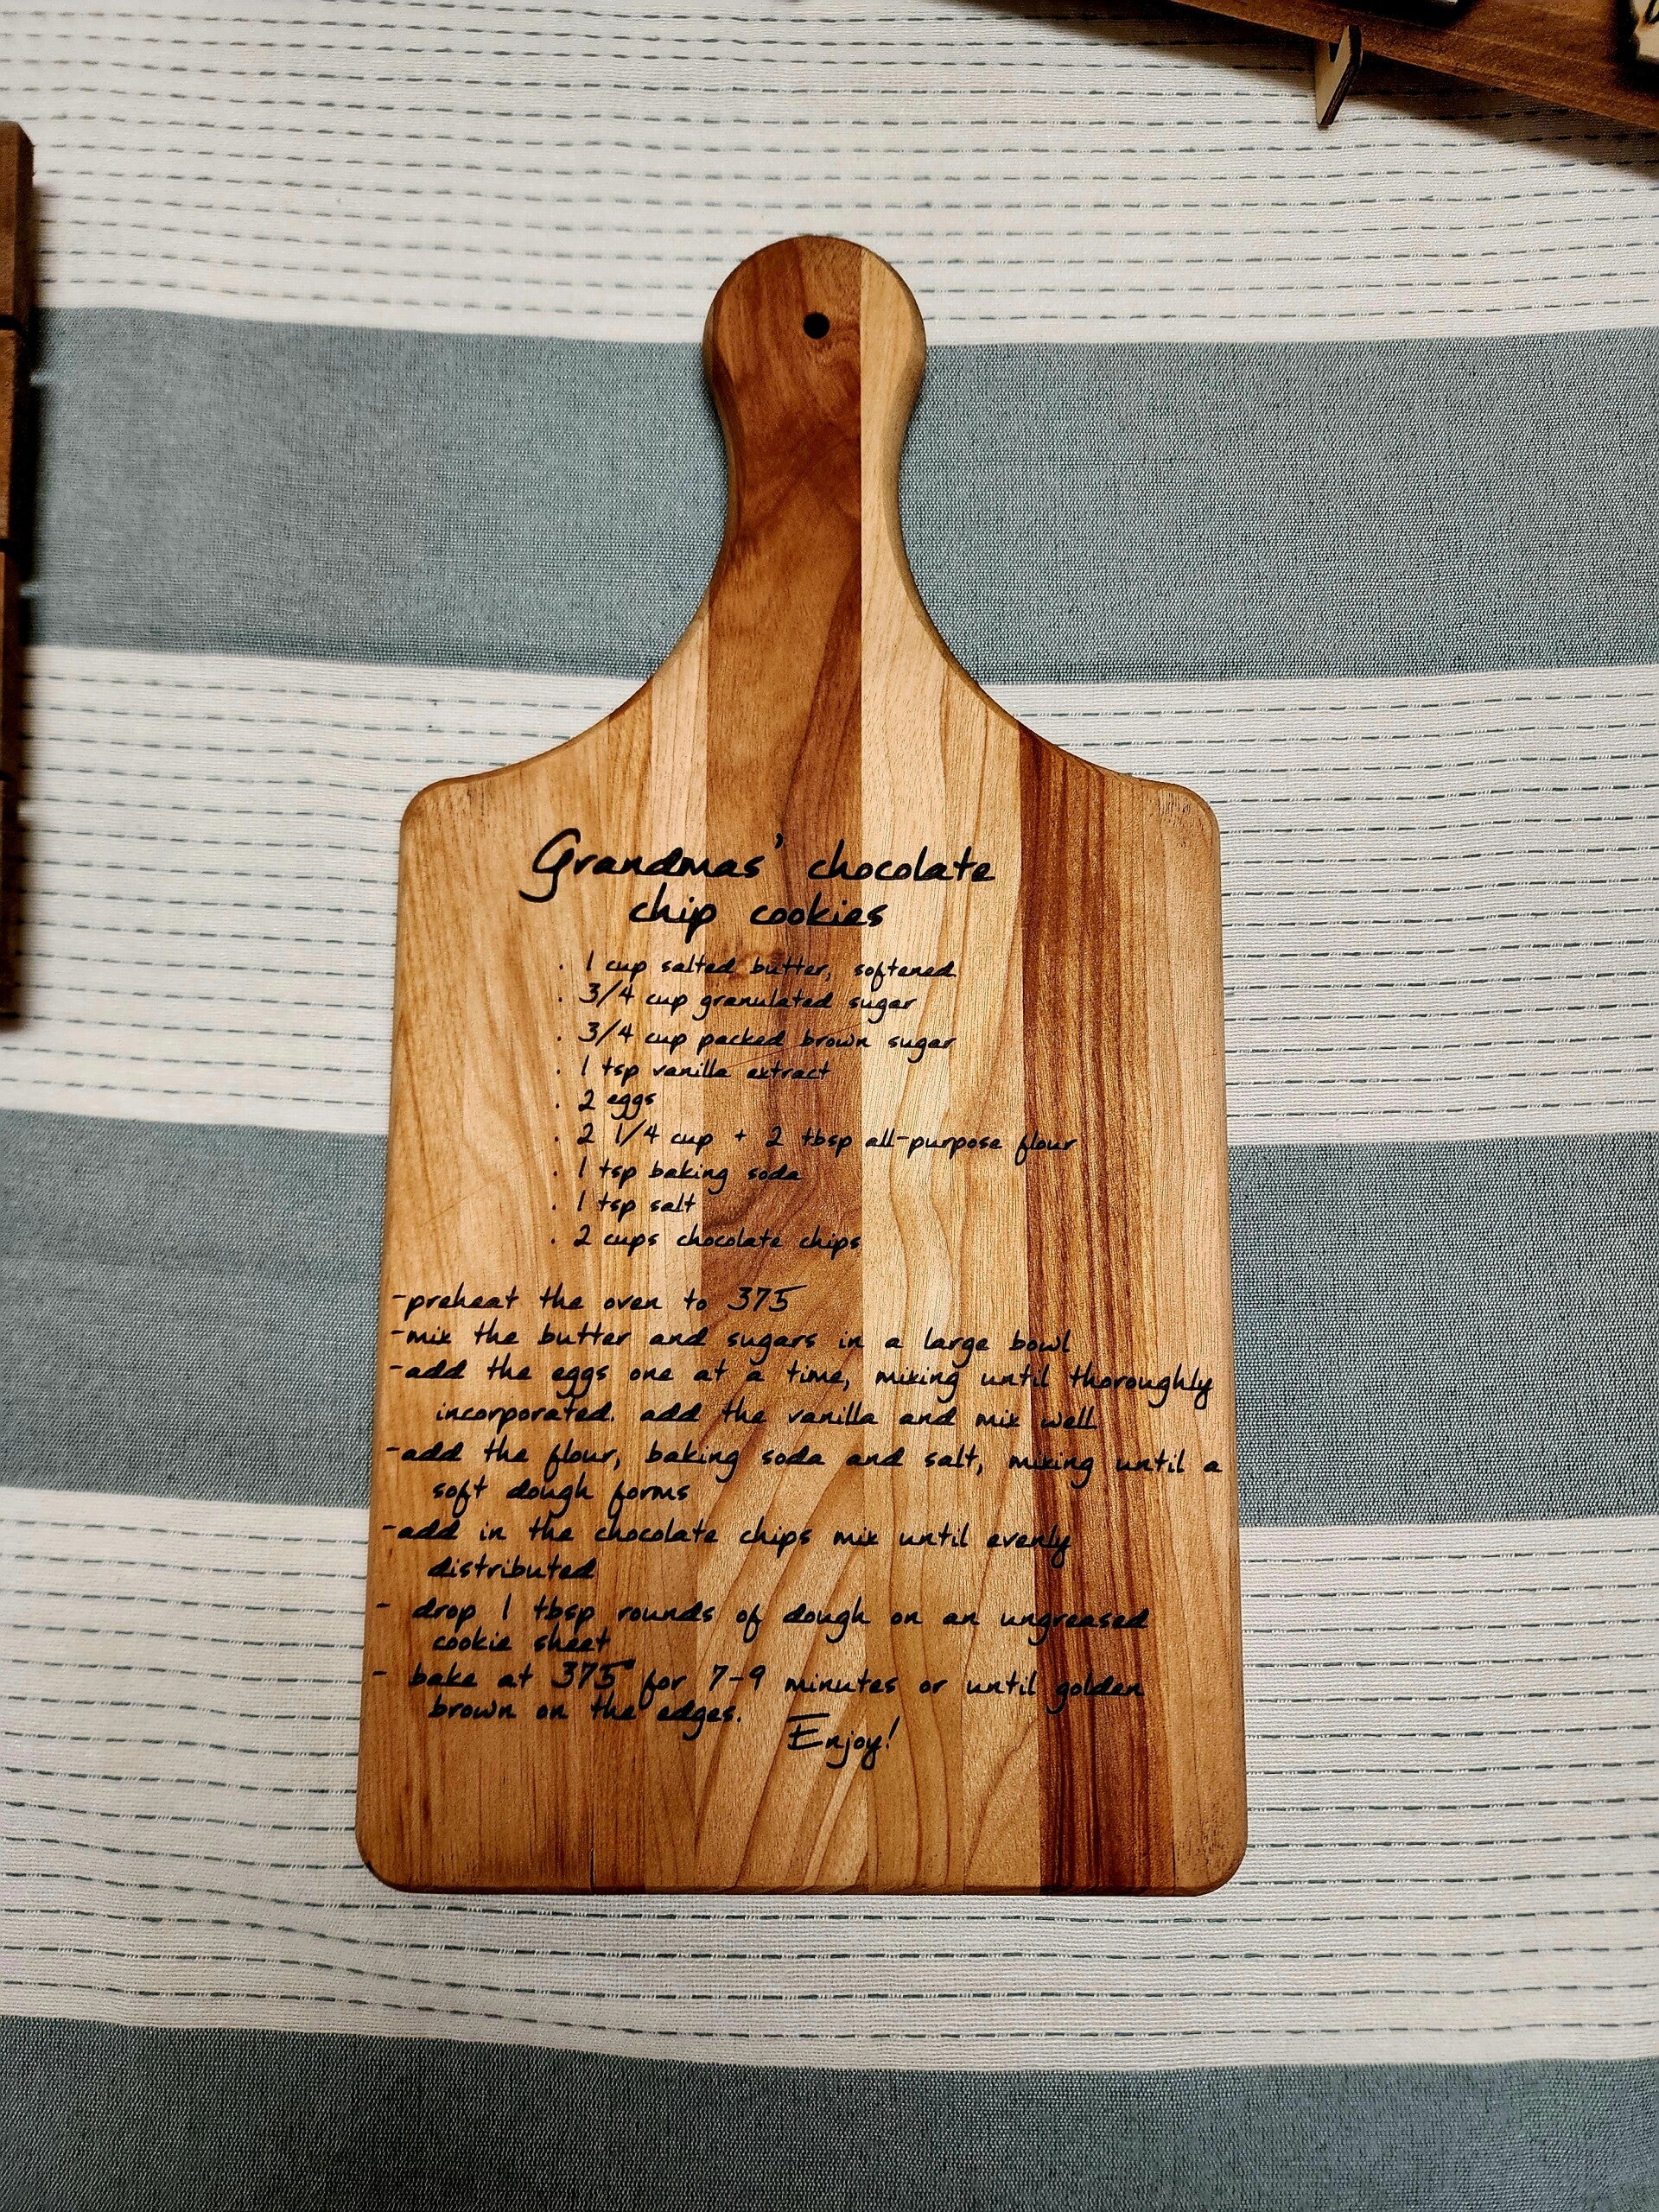 Grandmas' chocolate
chip cookies
. 1 cup salted butter, softened
. 3/4 cup granulated sugar
. 3/4 cup packed brown sugar
. 1 tsp vanilla extract
. 2 eggs
. 2 1/4 cup + 2 tbsp all-purpose flour
. 1 tsp baking soda
. 1 tsp salt
. 2 cups chocolate chips
-preheat the oven to 375
-mix the butter and sugars in a large bowl
-add the eggs one at a time, mixing until thoroughly
incorporated. add the vanilla and mix well
-add the flour, baking soda and salt, mixing until a
soft dough forms
-add in the chocolate chips mix until evenly
distributed
- drop 1 tbsp rounds of dough on an ungreased
cookie sheet
- bake at 375° for 7-9 minutes or until golden
brown on the edges.
Enjoy!